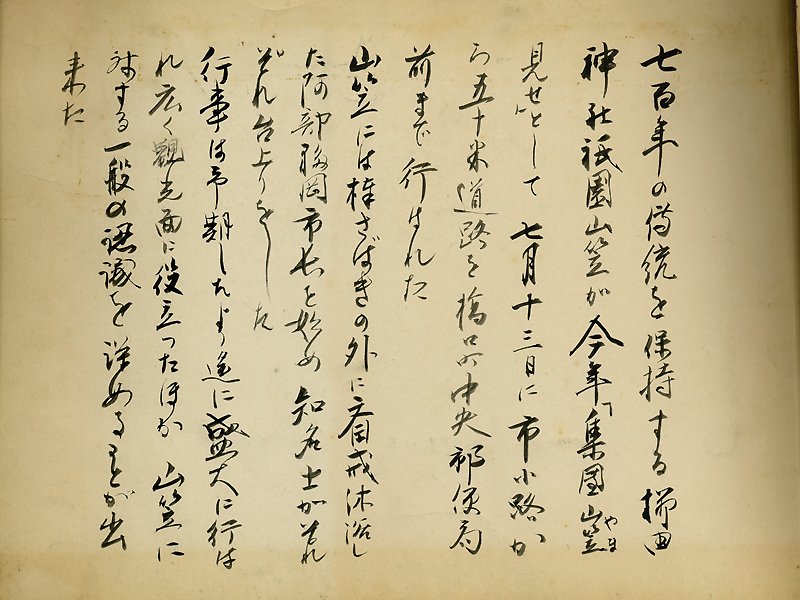 七百年の伝統を保持する櫛田
神社祇園山笠が今年「集團山笠やま
見せ」として七月十三日に市小路か
ら五十米道路を橋口町中央郵便局
前まで行はれた
山笠には棒さばきの外に斎戒沐浴し
た阿部福岡市長を始め知名士がそれ
ぞれ台上りをした
行事は予期したより遙に盛大に行は
れ広く観光面に役立つたほか山笠に
対する一般の認識を深めることが出
来た